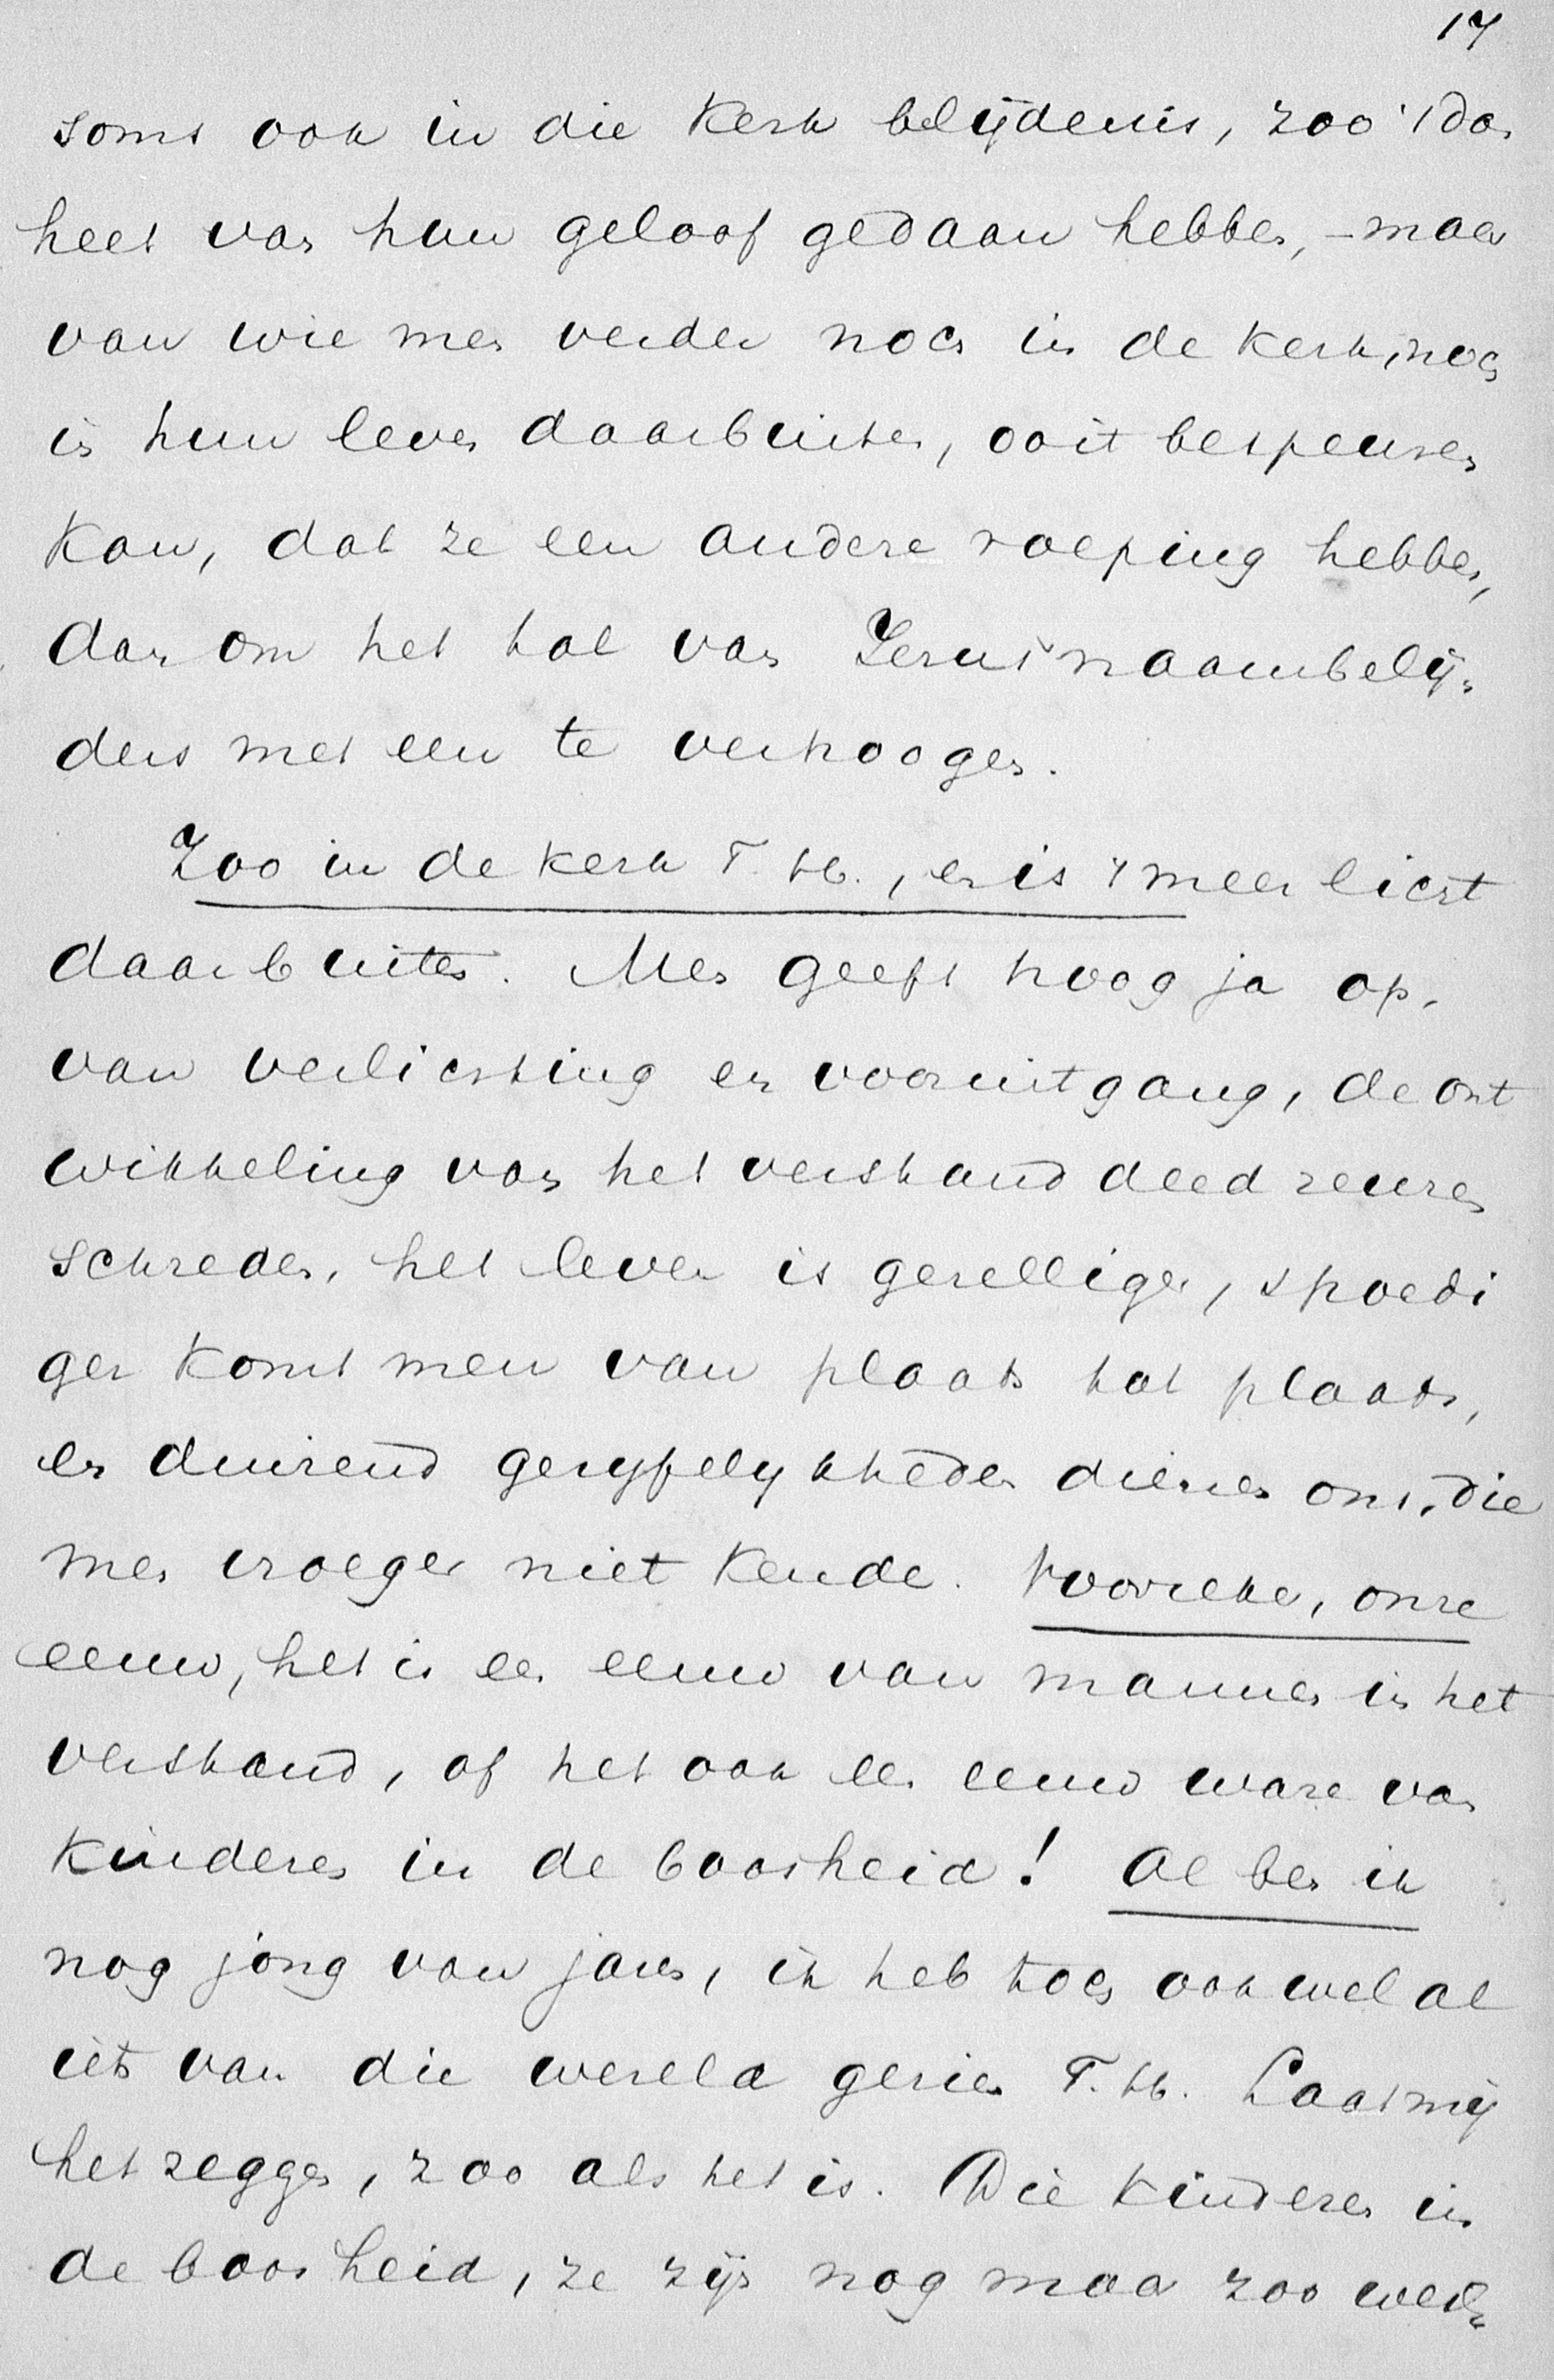 17
soms ook in die kerk belijdenis, zoo 't dan
heet van hun geloof gedaan hebben, – maar
van wie men verder noch in de kerk, noch
in hun leven daarbuiten, ooit bespeuren
kan, dat ze een andere roeping hebben,
dan om het tal van Jezus' naambelij-
ders met een te verhoogen.
Zoo in de kerk T. H., er is 't meer licht
daarbuiten. Men geeft hoog ja op,
van verlichting en vooruitgang, de ont
wikkeling van het verstand deed reuzen
schreden, het leven is gezelliger, spoedi
ger komt men van plaats tot plaats,
en duizend gerijfelijkheden dienen ons, die
men vroeger niet kende. Voorzeker, onze
eeuw, het is een eeuw van mannen in het
verstand, of het ook een eeuw ware van
kinderen in de boosheid! Al ben ik
nog jong van jaren, ik heb toch ook wel al
iets van die wereld gezien T. H. Laat mij
het zeggen, zoo als het is. Die kinderen in
de boosheid, ze zijn nog maar zoo